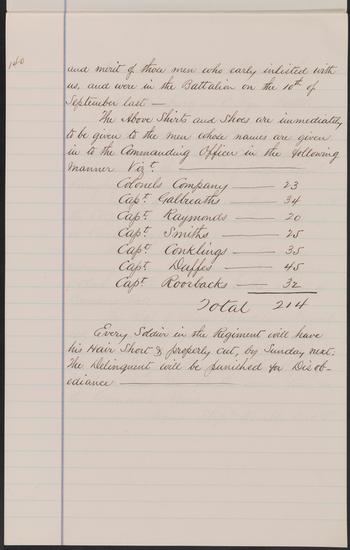 140
and merit of those men who early inlisted with
us, and were in the Battalion on the 10th of
September last —
The Above Shirts and Shoes are immediately
to be given to the men whose names are given
in to the Commanding Officer in the following
manner Vizt. —
Colonels Company — 23
Capt. Galbreaths — 34
Capt. Raymonds — 20
Capt. Smiths — 25
Capt. Conklings — 35
Capt. Duffes — 45
Capt. Roorbacks — 32
Total 214
Every Soldier in the Regiment will have
his Hair Short & properly cut, by Sunday next.
The Delinquent will be punished for Disob-
ediance —